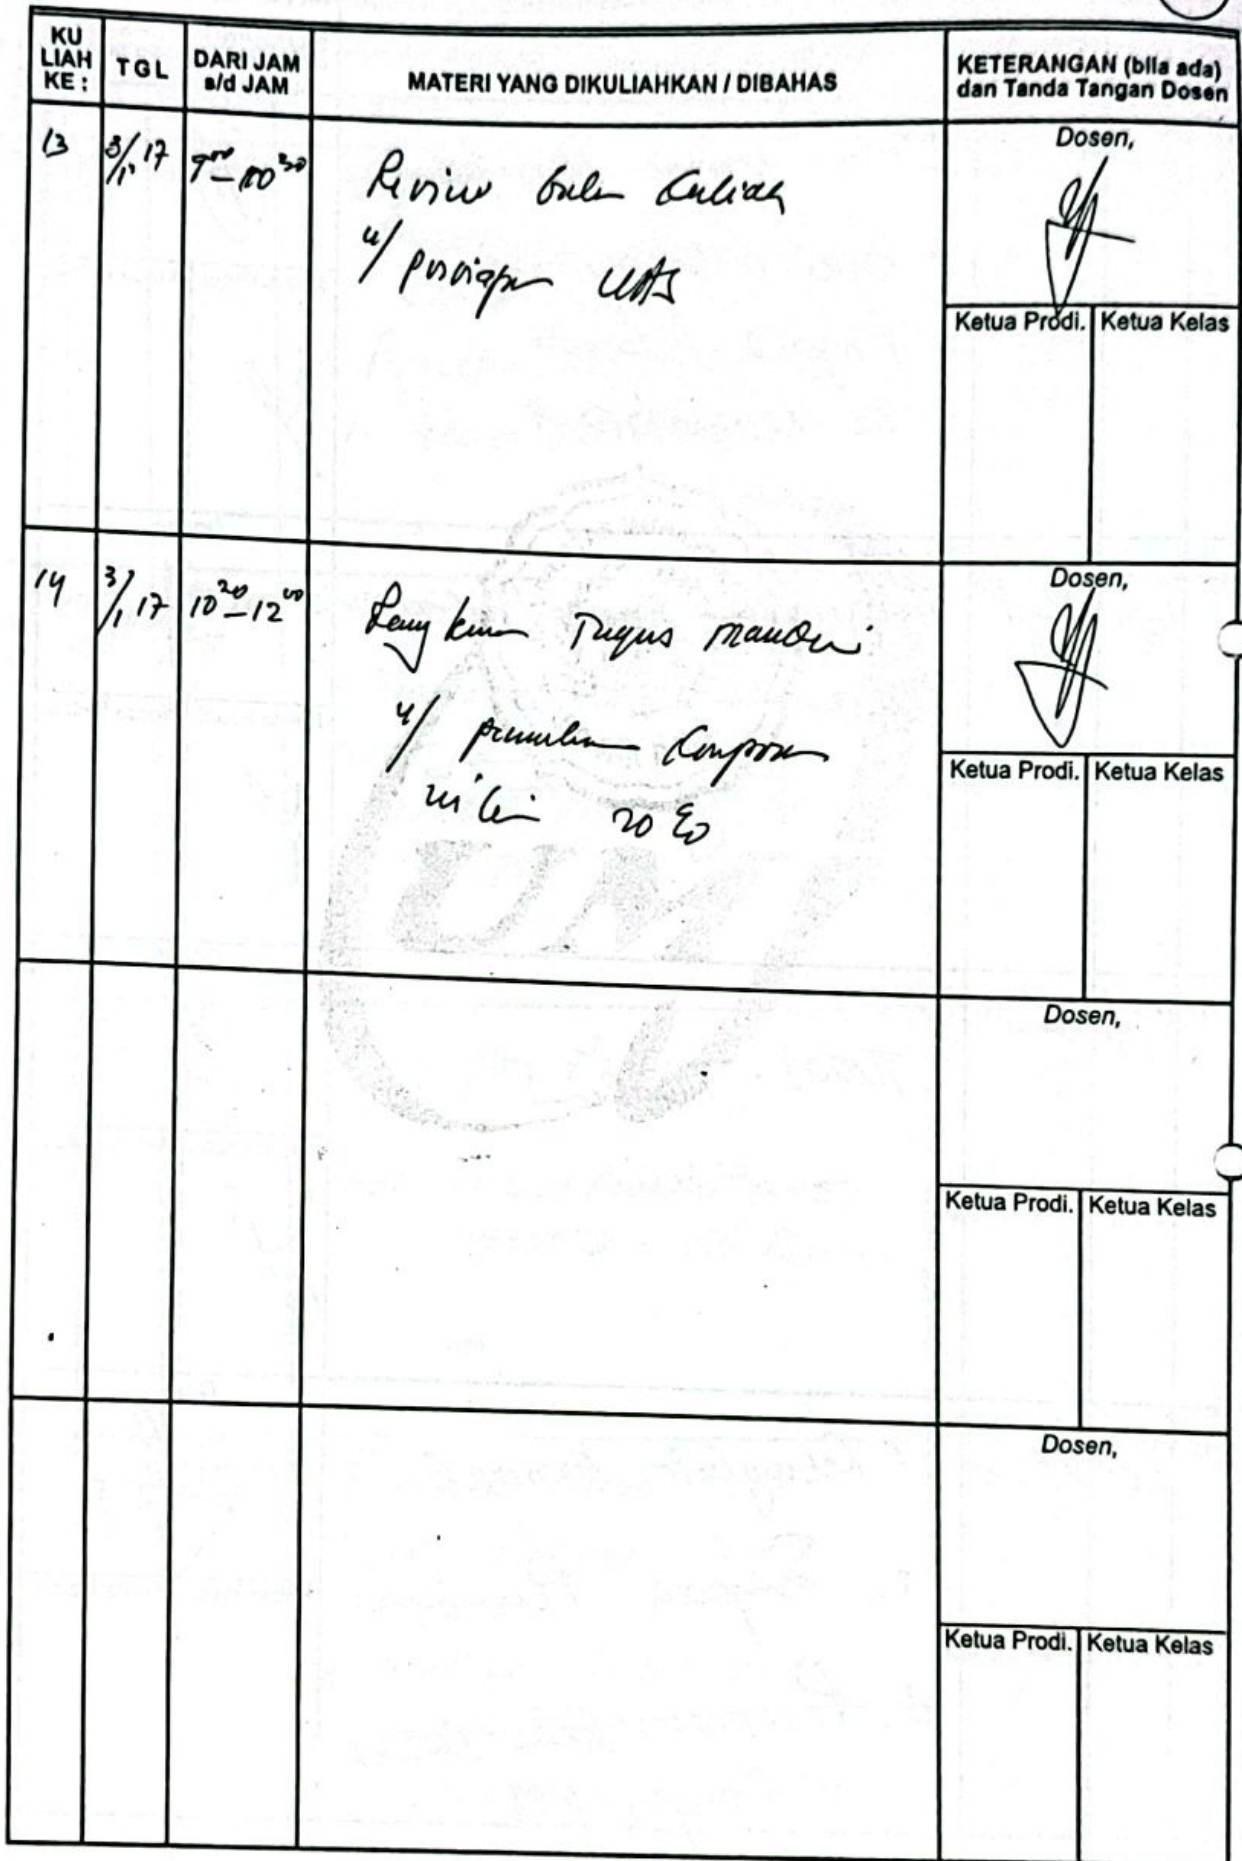 KU LIAH KE :
TGL
DARI JAM s/d JAM
MATERI YANG DIKULIAHKAN / DIBAHAS
KETERANGAN (bila ada) dan Tanda Tangan Dosen
13
3/1 17
9⁰⁰ - 10³⁰
Review kuliah
u/ persiapan UAS
Dosen,
Ketua Prodi.
Ketua Kelas
14
3/1 17
10²⁰ - 12⁰⁰
Tugas mandiri
u/
nilai 20 %
Dosen,
Ketua Prodi.
Ketua Kelas
UMI
Dosen,
Ketua Prodi.
Ketua Kelas
Dosen,
Ketua Prodi.
Ketua Kelas